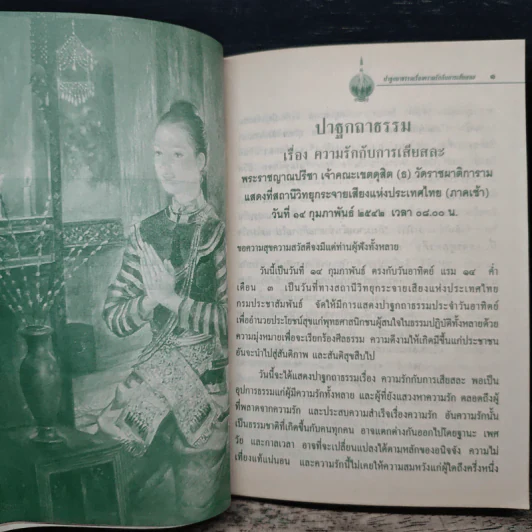 ปาฐกถาธรรมเรื่องความรักกับการเสียสละ ๑
ปาฐกถาธรรม
เรื่อง ความรักกับการเสียสละ
พระราชญาณปรีชา เจ้าคณะเขตดุสิต (ธ) วัดราชผาติการาม
แสดงที่สถานีวิทยุกระจายเสียงแห่งประเทศไทย (ภาคเช้า)
วันที่ ๑๔ กุมภาพันธ์ ๒๕๔๒ เวลา ๐๘.๐๐ น.
ขอความสุขความสวัสดีจงมีแด่ท่านผู้ฟังทั้งหลาย
วันนี้เป็นวันที่ ๑๔ กุมภาพันธ์ ตรงกับวันอาทิตย์ แรม ๑๔ ค่ำ
เดือน ๓ เป็นวันที่ทางสถานีวิทยุกระจายเสียงแห่งประเทศไทย
กรมประชาสัมพันธ์ จัดให้มีการแสดงปาฐกถาธรรมประจำวันอาทิตย์
เพื่ออำนวยประโยชน์สุขแก่พุทธศาสนิกชนผู้สนใจในธรรมปฏิบัติทั้งหลายด้วย
ความมุ่งหมายเพื่อจะเรียกร้องศีลธรรม ความดีงามให้เกิดมีขึ้นแก่ประชาชน
อันจะนำไปสู่สันติภาพ และสันติสุขสืบไป
วันนี้จะได้แสดงปาฐกถาธรรมเรื่อง ความรักกับการเสียสละ พอเป็น
อุปการธรรมแก่ผู้มีความรักทั้งหลาย และผู้ที่ยังแสวงหาความรัก ตลอดถึงผู้
ที่พลาดจากความรัก และประสบความสำเร็จเรื่องความรัก อันความรักนั้น
เป็นธรรมชาติที่เกิดขึ้นกับคนทุกคน อาจแตกต่างกันออกไปโดยฐานะ เพศ
วัย และกาลเวลา อาจที่จะเปลี่ยนแปลงได้ตามหลักของอนิจจัง ความไม่
เที่ยงแท้แน่นอน และความรักนี้ไม่เคยให้ความสมหวังแก่ผู้ใดถึงครึ่งหนึ่ง